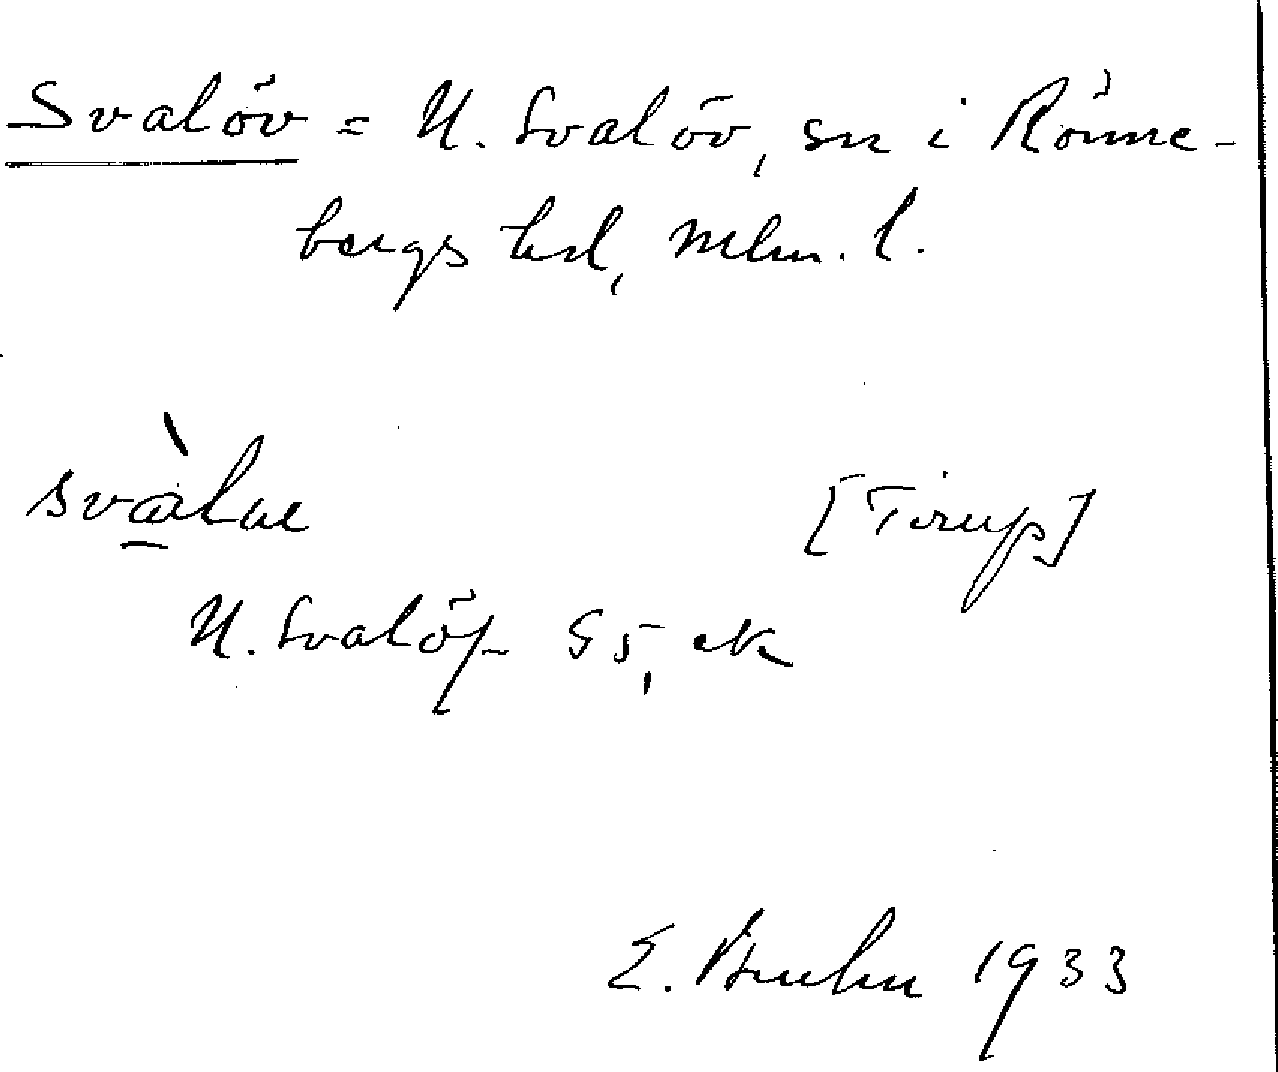 Svalöv = N. Svalöv, sn i Rönne-
bergs hd, Mlm. l.
[Tirup]
N. Svalöf S5, ek
E. Bruhn 1933